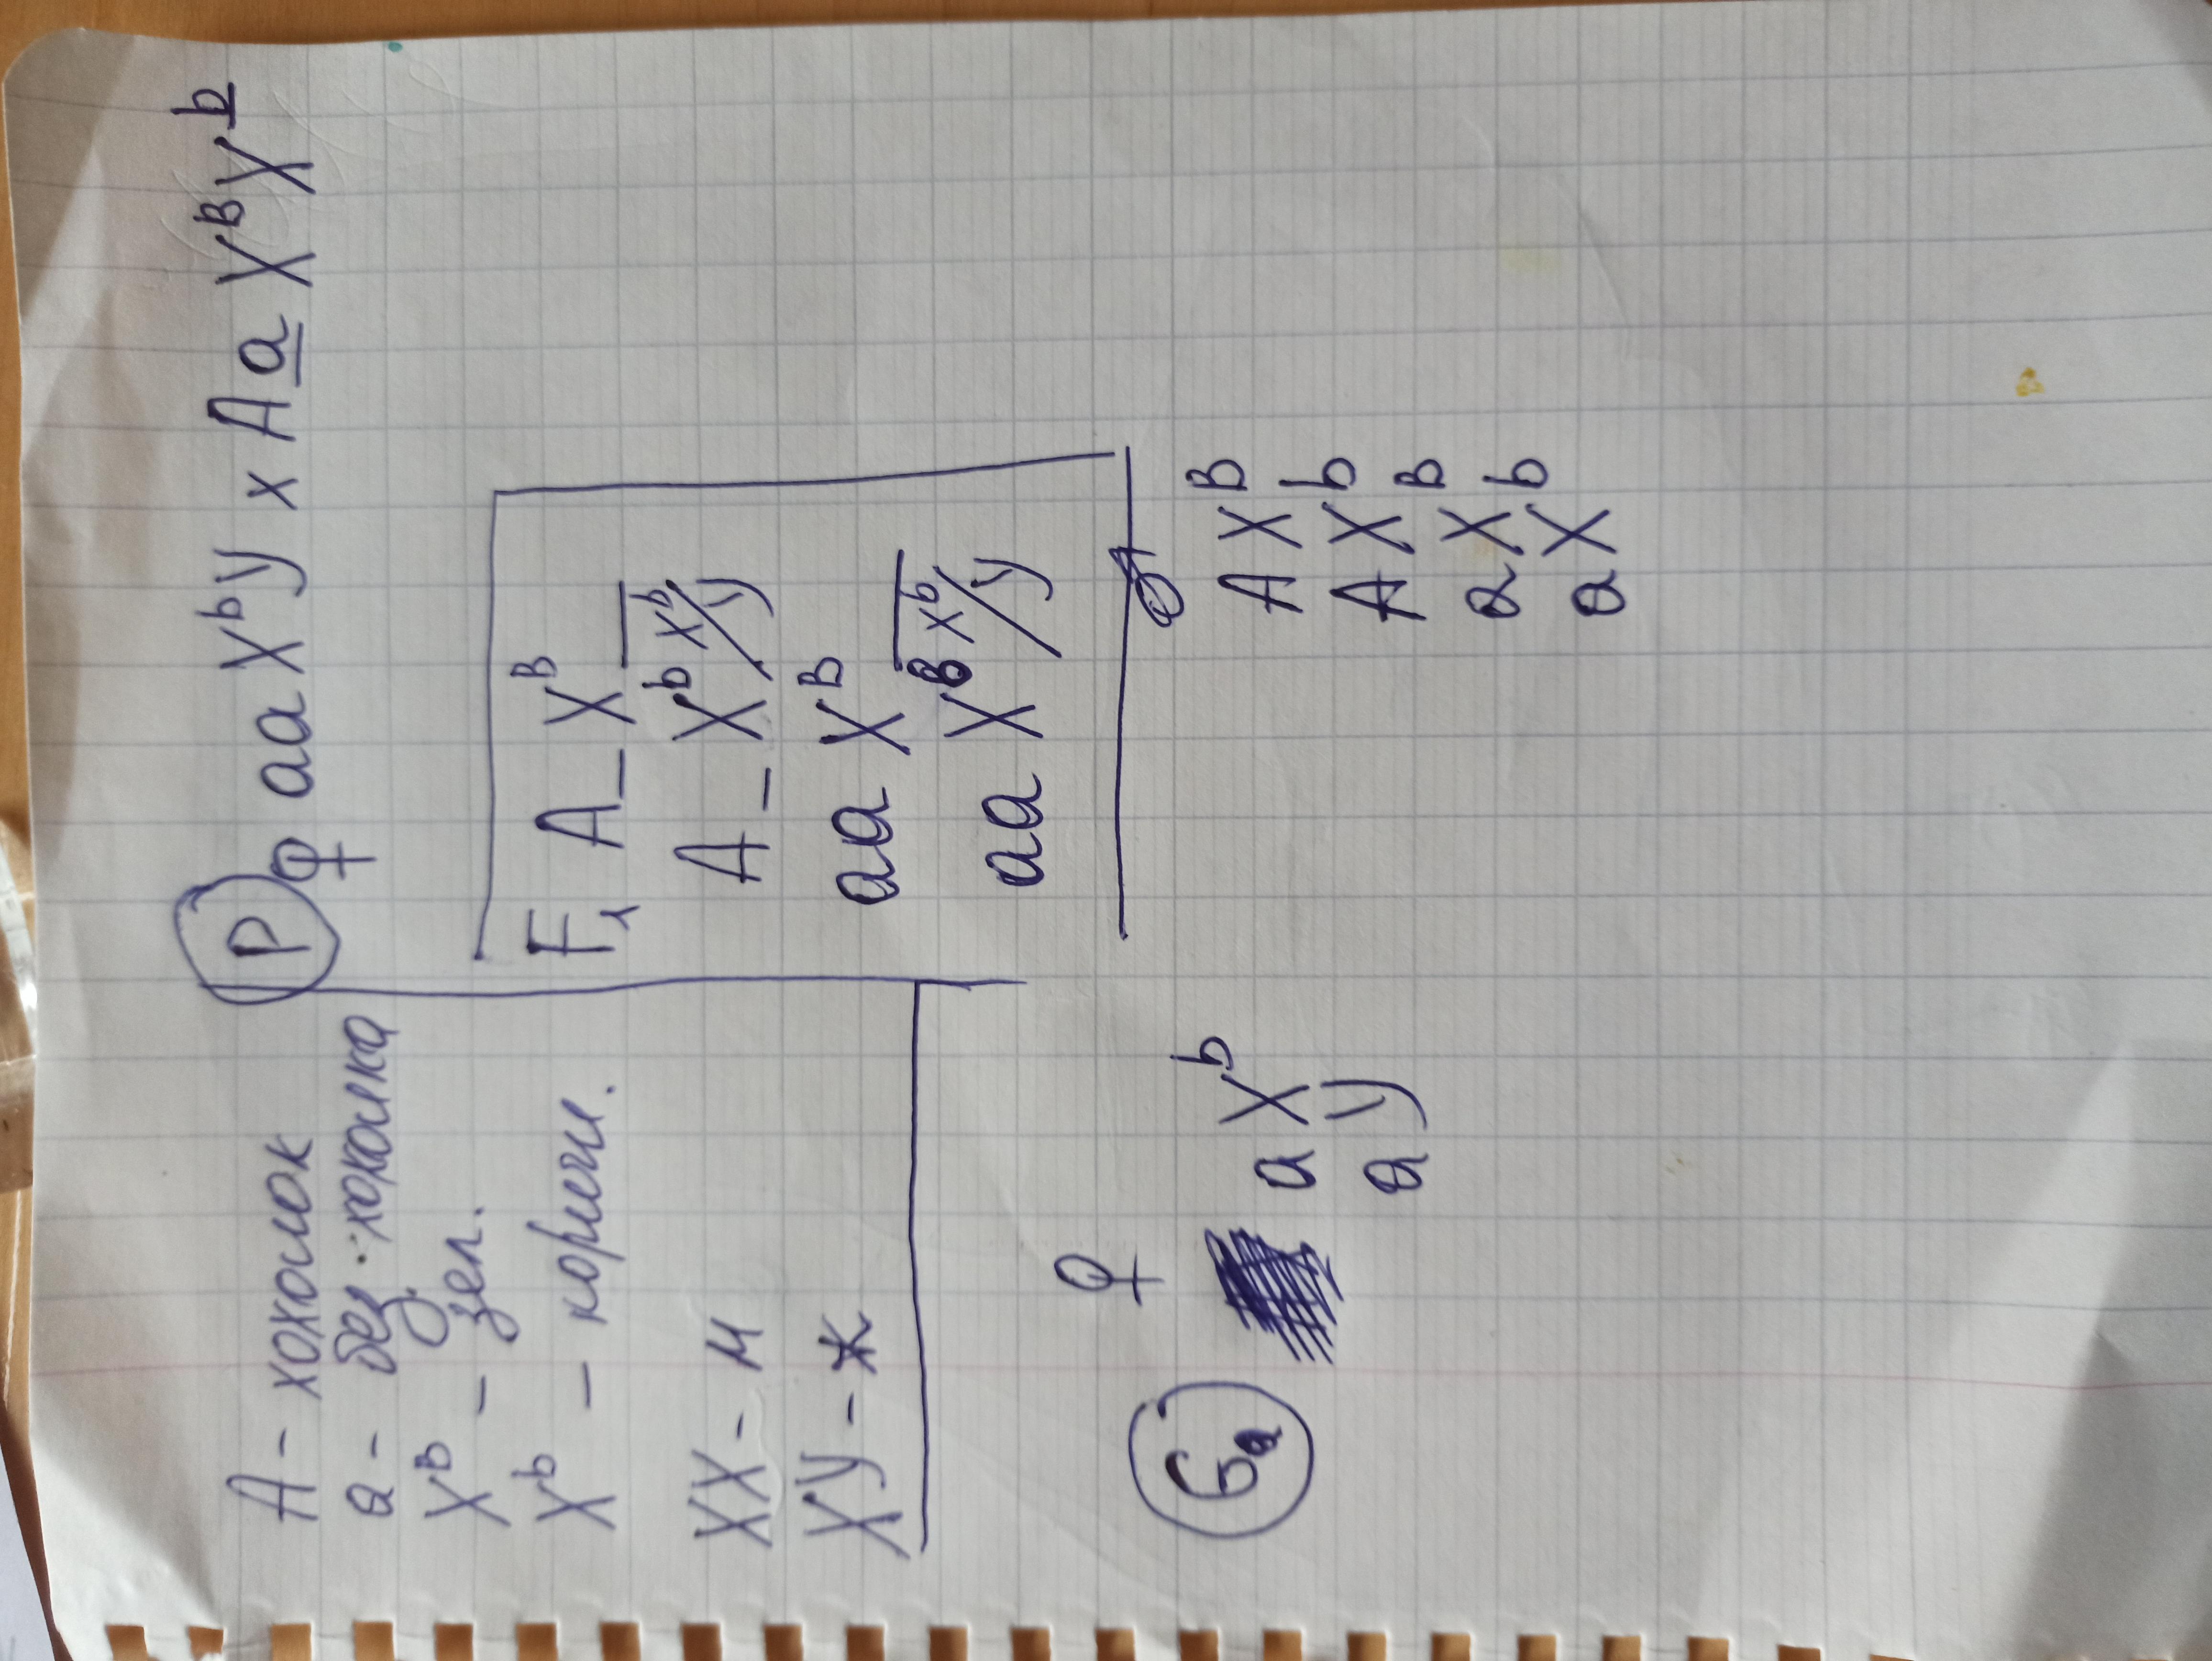 A - хохолок
a - без хохолка
Xᴮ - зел.
Xᵇ - коричн.
XX - м
XY - ж
P ♀ aaXᵇY x AaXᴮXᵇ
F₁ A_Xᴮ
A_Xᵇ Xᵇ/Y
aaXᴮ
aaXᴮ Xᵇ/Y
G ♀ ♂
aXᵇ AXᴮ
aY AXᵇ
aXᴮ
aXᵇ